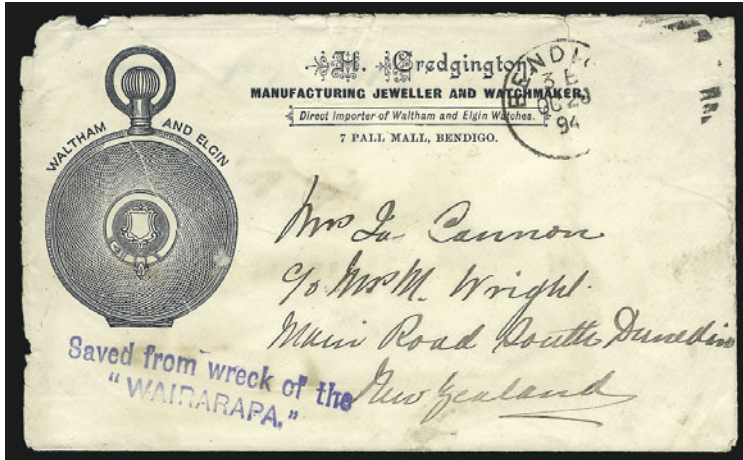 H. Credgington,
MANUFACTURING JEWELLER AND WATCHMAKER,
Direct Importer of Waltham and Elgin Watches.
7 PALL MALL, BENDIGO.
WALTHAM AND ELGIN
BENDIGO
3 E
OC 20
94
Mrs Ja Cannon
c/o Mrs M. Wright.
Main Road South Dunedin
New Zealand
Saved from wreck of the
"WAIRARAPA."